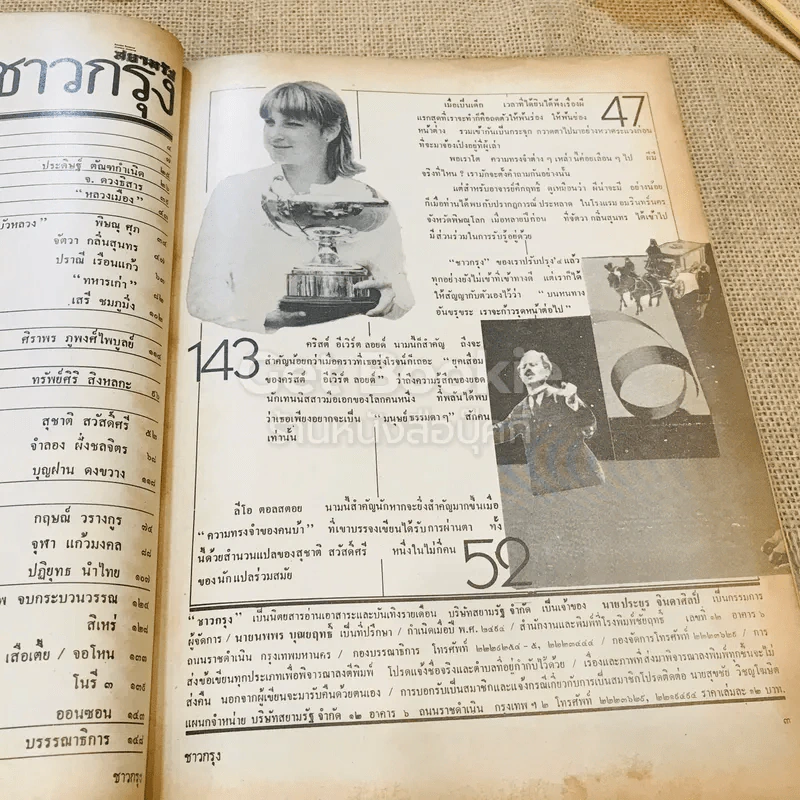 สยามรัฐ
ชาวกรุง
๔
๗
ประดิษฐ์ ตัณฑกำเนิด ๒๕
จ. ดวงธิสาร
"หลวงเมือง"
บัวหลวง" พิษณุ ศุภ ๓๔
จัตวา กลิ่นสุนทร
ปราณี เรือนแก้ว
"ทหารเก่า" ๘๒
เสรี ชมภูมิ่ง ๑๐๒
ศิราพร ภูพงศ์ไพบูลย์ ๑๑๔
ทรัพย์ศิริ สิงหลกะ
สุชาติ สวัสดิ์ศรี ๕๒
จำลอง ฝั่งชลจิตร ๖๘
บุญฝาน ดงขวาง ๑๑๘
กฤษณ์ วรางกูร ๗๔
จุฬา แก้วมงคล ๘๘
ปฏิยุทธ นำไทย ๑๐๗
พ จบกระบวนวรรณ ๑๒๔
สีเหร่ ๑๒๘
เสือเตี้ย / จอโหน ๑๓๓
โนรี ๓ ๑๓๙
ออนซอน ๑๔๓
บรรรณาธิการ ๑๔๘
ชาวกรุง
47
เมื่อเป็นเด็ก เวลาที่ได้ยินได้ฟังเรื่องผี
แรกสุดที่เราจะทำก็คือถดตัวให้พ้นร่อง ให้พ้นช่อง
หน้าต่าง รวมเข้ากันเป็นกระจุก กวาดตาไปมาอย่างหวาดระแวงก่อน
ที่จะมาจ้องเป๋งอยู่ที่ผู้เล่า
พอเราโต ความทรงจำต่าง ๆ เหล่านี้ค่อยเลือน ๆ ไป ผีมี
จริงที่ไหน ? เรามักจะตั้งคำถามกันอย่างนั้น
แต่สำหรับอาจารย์คึกฤทธิ์ ดูเหมือนว่า ผีน่าจะมี อย่างน้อย
ก็เมื่อท่านได้พบกับปรากฏการณ์ประหลาด ในโรงแรมอมรินทร์นคร
จังหวัดพิษณุโลก เมื่อหลายปีก่อน ที่จัตวา กลิ่นสุนทร ได้เข้าไป
มีส่วนร่วมในการรับรู้อยู่ด้วย
"ชาวกรุง" ของเราปรับปรุง ๆ แล้ว
ทุกอย่างยังไม่เข้าที่เข้าทางดี แต่เราก็ได้
ให้สัญญากับตัวเองไว้ว่า "บนหนทาง
อันขรุขระ เราจะก้าวรุดหน้าต่อไป"
143
คริสต์ อีเวิร์ต ลอยด์ นามนี้ก็สำคัญ ถึงจะ
สำคัญน้อยกว่าเมื่อคราวที่เธอรุ่งโรจน์ก็เถอะ "ยุคเสื่อม
ของคริสต์ อีเวิร์ต ลอยด์" ว่าถึงความรู้สึกของยอด
นักเทนนิสสาวมือเอกของโลกคนหนึ่ง ที่พลันได้พบ
ว่าเธอเพียงอยากจะเป็น "มนุษย์ธรรมดา ๆ" สักคน
เท่านั้น
Get Bookie
ร้านหนังสือบุคกี้
ลีโอ ตอลสตอย นามนี้สำคัญนักหากจะยิ่งสำคัญมากขึ้นเมื่อ
"ความทรงจำของคนบ้า" ที่เขาบรรจงเขียนได้รับการผ่านตา ทั้ง
นี้ด้วยสำนวนแปลของสุชาติ สวัสดิ์ศรี หนึ่งในไม่กี่คน
ของนักแปลร่วมสมัย
52
"ชาวกรุง" เป็นนิตยสารอ่านเอาสาระและบันเทิงรายเดือน บริษัทสยามรัฐ จำกัด เป็นเจ้าของ นายประยูร จินดาศิลป์ เป็นกรรมการ
ผู้จัดการ / นายนพพร บุณยฤทธิ์ เป็นที่ปรึกษา / กำเนิดเมื่อปี พ.ศ. ๒๔๙๔ / สำนักงานและพิมพ์ที่โรงพิมพ์ชัยฤทธิ์ เลขที่ ๑๒ อาคาร ๖
ถนนราชดำเนิน กรุงเทพมหานคร / กองบรรณาธิการ โทรศัพท์ ๒๒๑๙๒๕๔-๕, ๒๒๒๓๔๔๔ / กองจัดการโทรศัพท์ ๒๒๒๓๖๒๙ / การ
ส่งข้อเขียนทุกประเภทเพื่อพิจารณาลงตีพิมพ์ โปรดแจ้งชื่อจริงและตำบลที่อยู่กำกับไว้ด้วย / เรื่องและภาพที่ส่งมาพิจารณาลงพิมพ์ทุกชิ้นจะไม่
ส่งคืน นอกจากผู้เขียนจะมารับคืนด้วยตนเอง / การบอกรับเป็นสมาชิกและแจ้งกรณีเกี่ยวกับการเป็นสมาชิกโปรดติดต่อ นายสุขชัย วิชญโฆษิต
แผนกจำหน่าย บริษัทสยามรัฐ จำกัด ๑๒ อาคาร ๖ ถนนราชดำเนิน กรุงเทพ ฯ ๒ โทรศัพท์ ๒๒๒๓๖๒๙, ๒๒๑๙๔๙๔ ราคาเล่มละ ๑๒ บาท.
๓
ชาวกรุง